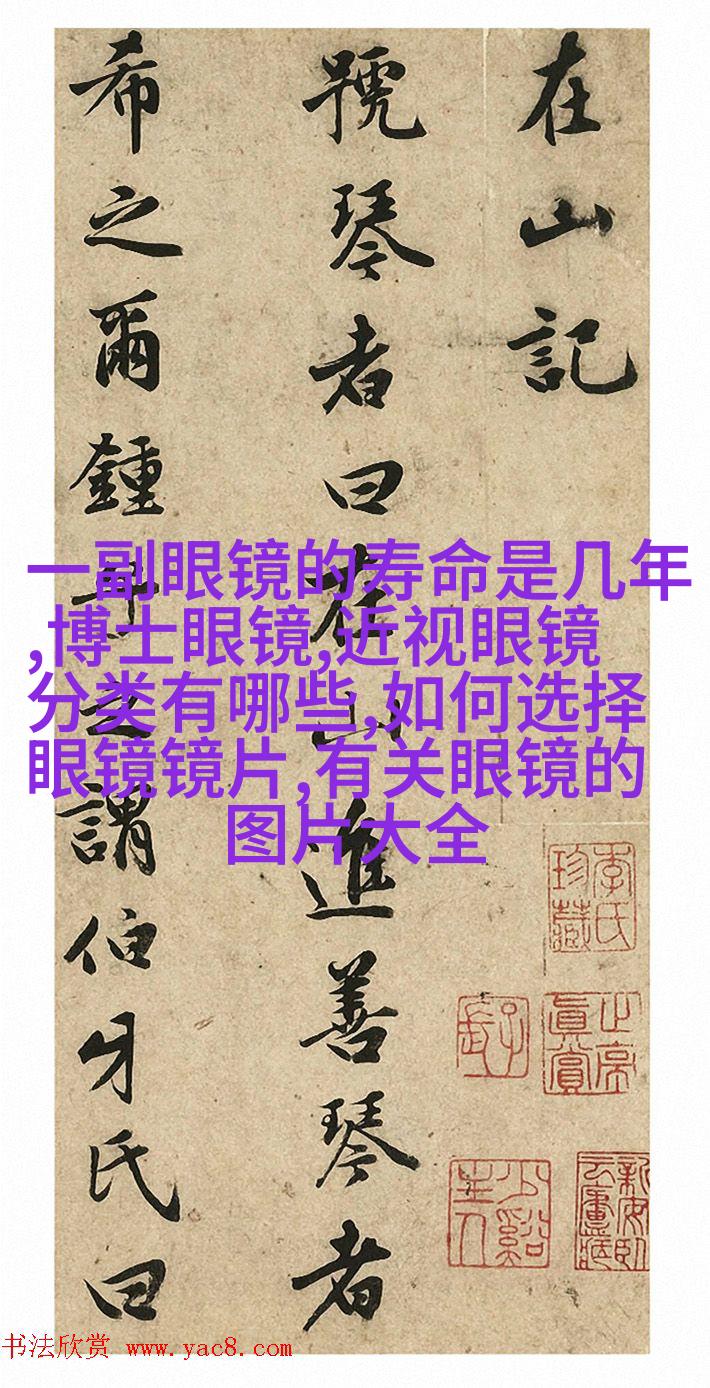 在山記
號琴者曰在山進善琴者
希之爾鍾之謂伯牙氏曰
一副眼镜的寿命是几年
,博士眼镜,近视眼镜
分类有哪些,如何选择
眼镜镜片,有关眼镜的
图片大全
李氏珍藏
少谿主人
书法欣赏 www.yac8.com